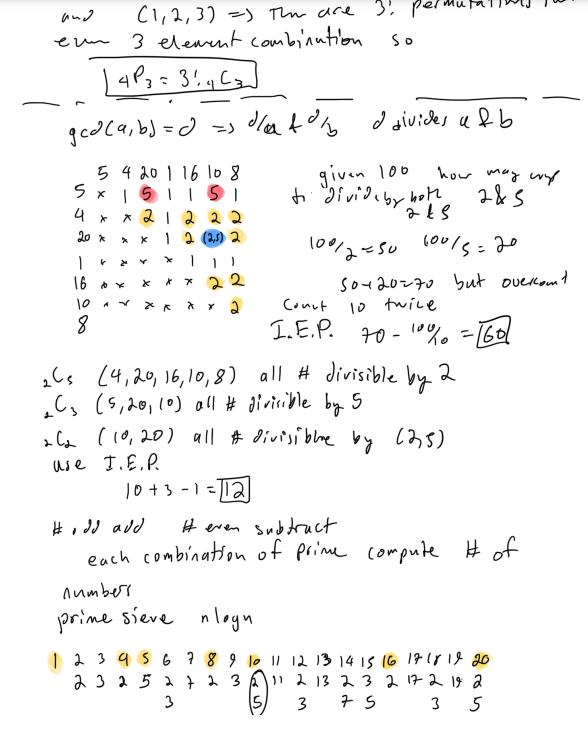 and (1,2,3) => Thr are 3! permutations for
even 3 element combination so
4P3 = 3! 4C3
gcd(a,b) = d => d/a & d/b d divides a & b
5 4 20 1 16 10 8
5 x 1 5 1 1 5 1
4 x x 2 1 2 2 2
20 x x x 1 2 (2,5) 2
1 x x x x 1 1 1
16 x x x x x 2 2
10 x x x x x x 2
8
given 100 how may
divide by both 2 & 5
2 & 5
100/2 = 50 100/5 = 20
50+20=70 but overcount
Count 10 twice
I.E.P. 70 - 100/10 = 60
2C5 (4,20,16,10,8) all # divisible by 2
2C3 (5,20,10) all # divisible by 5
2C2 (10,20) all # divisible by (2,5)
use I.E.P.
10 + 3 - 1 = 12
# odd add # even subtract
each combination of prime compute # of
numbers
prime sieve nlogn
1 2 3 4 5 6 7 8 9 10 11 12 13 14 15 16 17 18 19 20
2 3 2 5 2 7 2 3 2 11 2 13 2 3 2 17 2 19 2
3 5 3 7 5 3 5